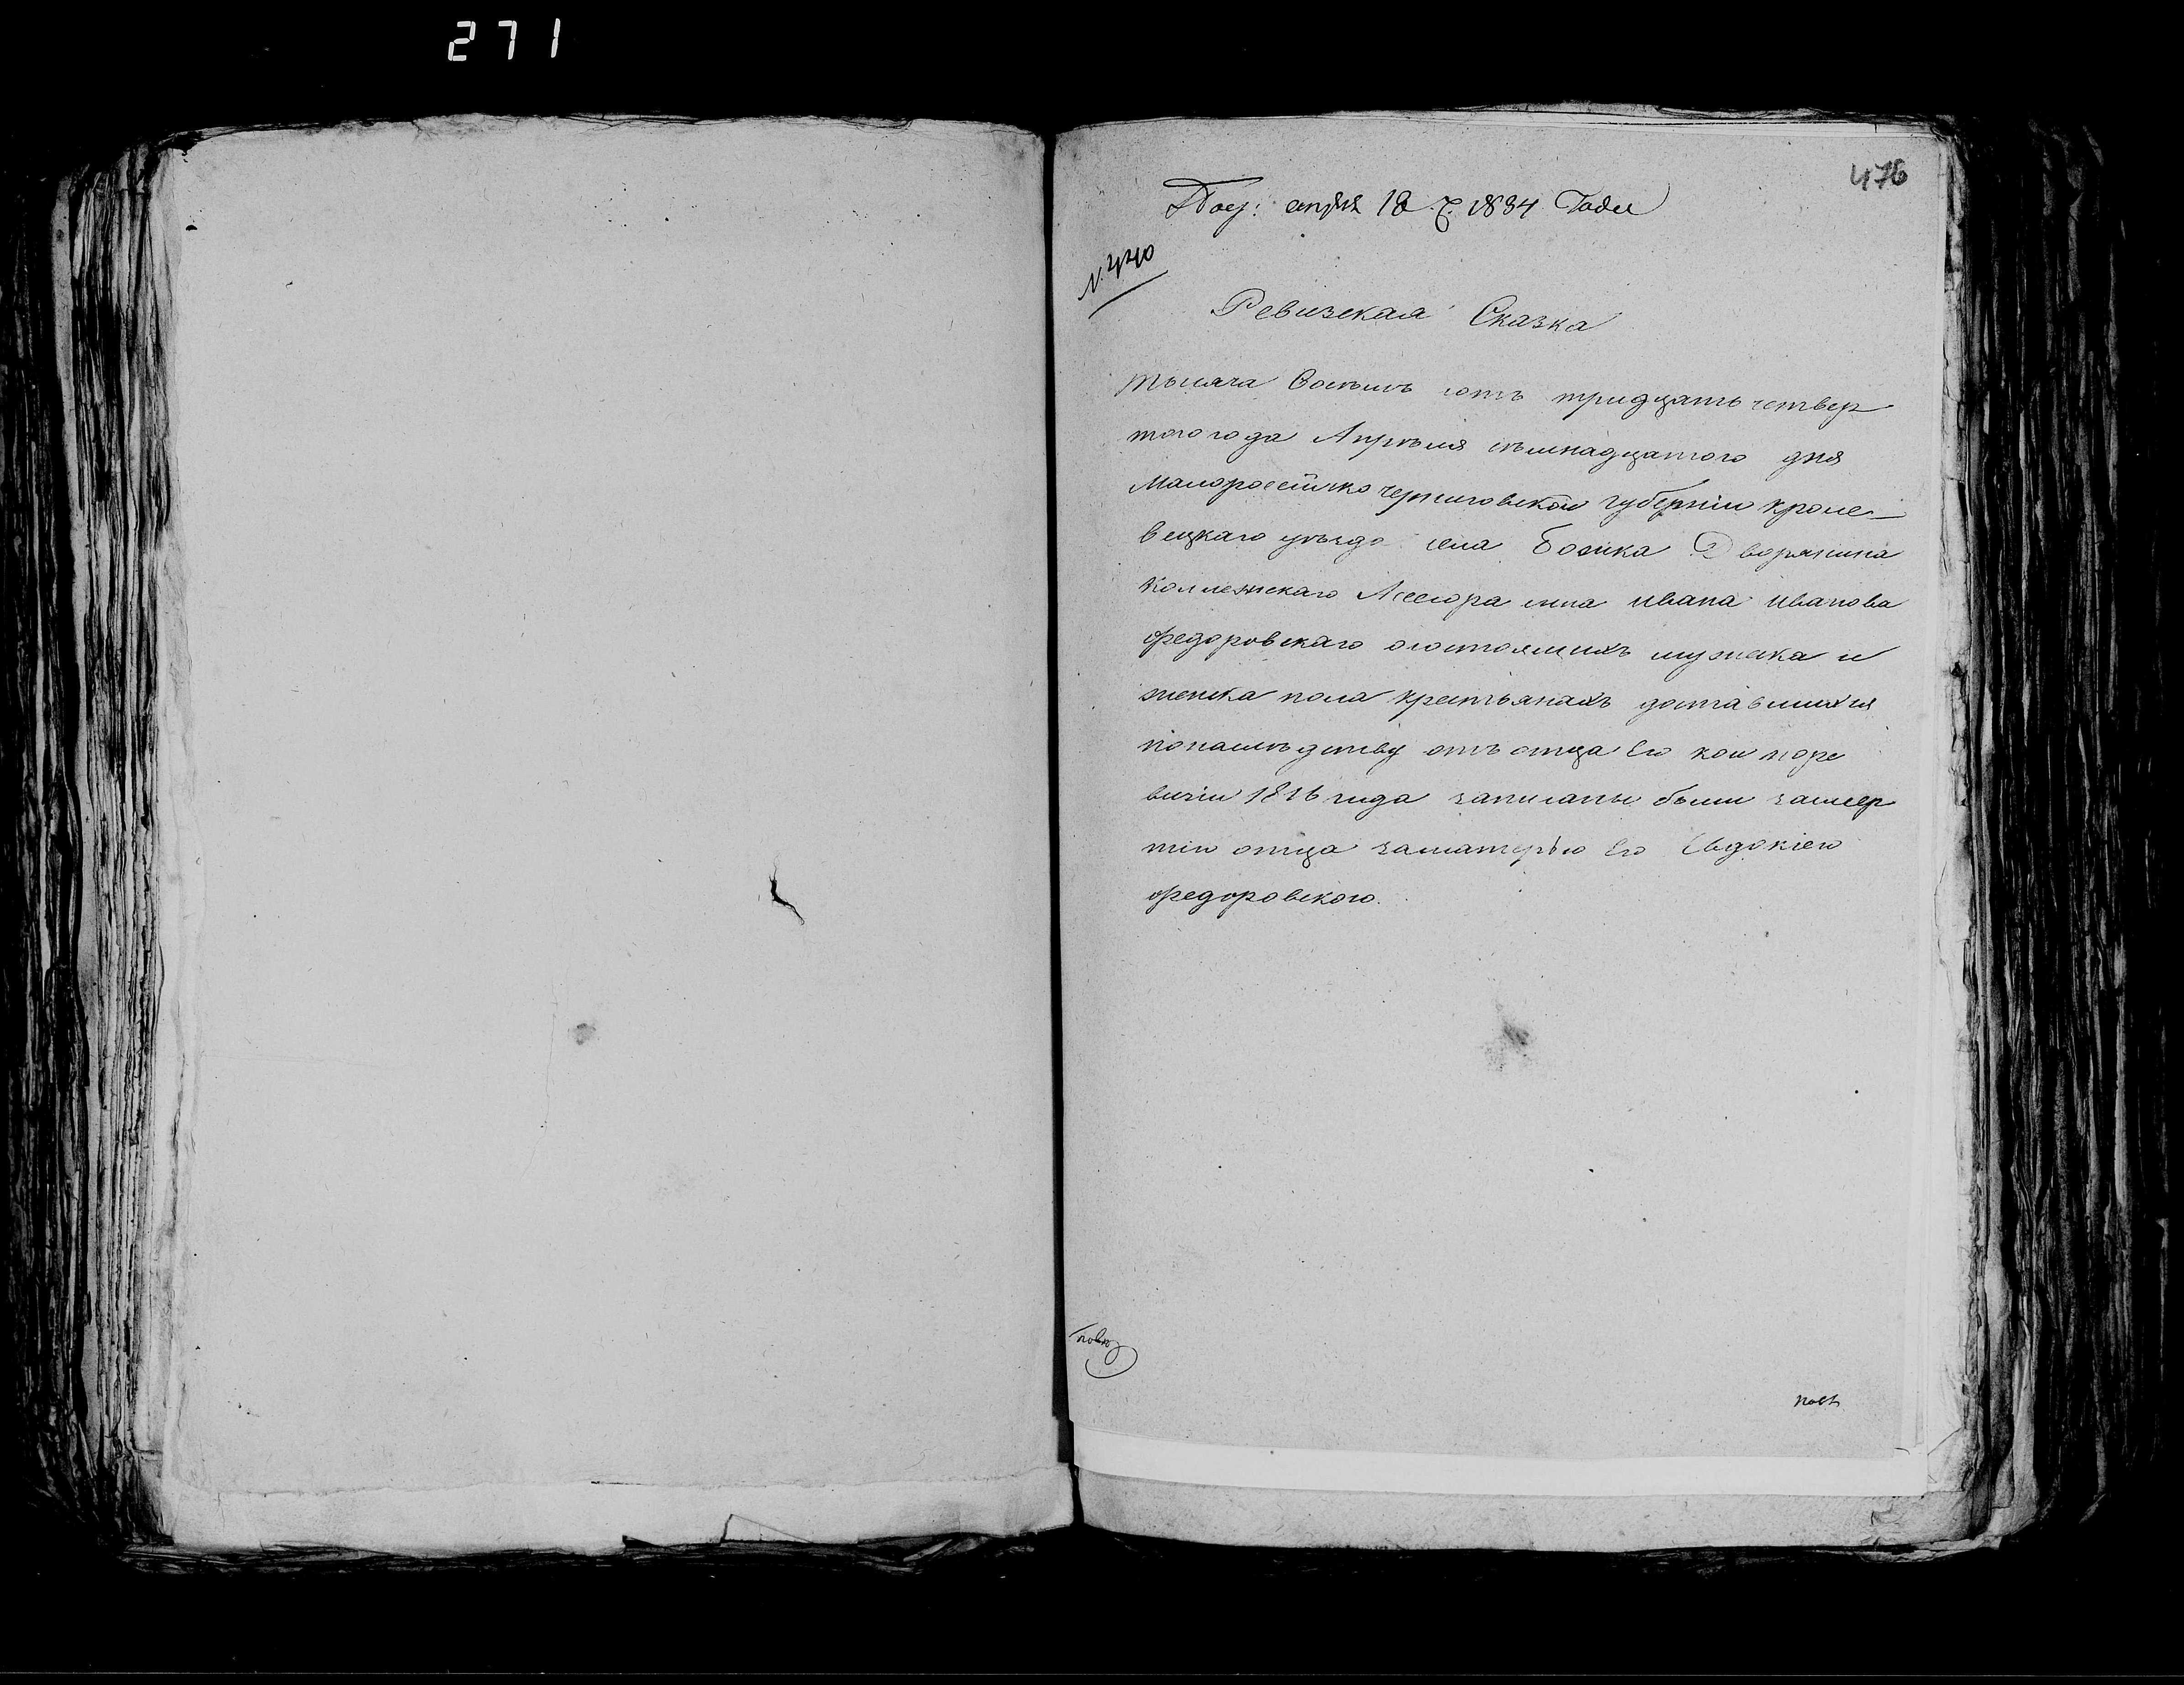 271
476
Пол: апреля 18 Д. 1834 Года
N. 440
Ревизская Сказка
тысяча восѣмъ сотъ тридцать четвер
того года Апрѣля сѣмнадцатого дня
Малоросейско черниговской губерніи Кроле-
вецкаго уѣзда села Божка Дворянина
Коллежскаго Асесора сына Ивана Иванова
Федоровскаго осостоящихъ мужеска и
женска пола крестьянахъ доставшихся
понаслѣдству отъ отца Его кои поре
визіи 1816 года записаны были засмер
тію отца заматерью Его Евдокіею
Федоровскою.